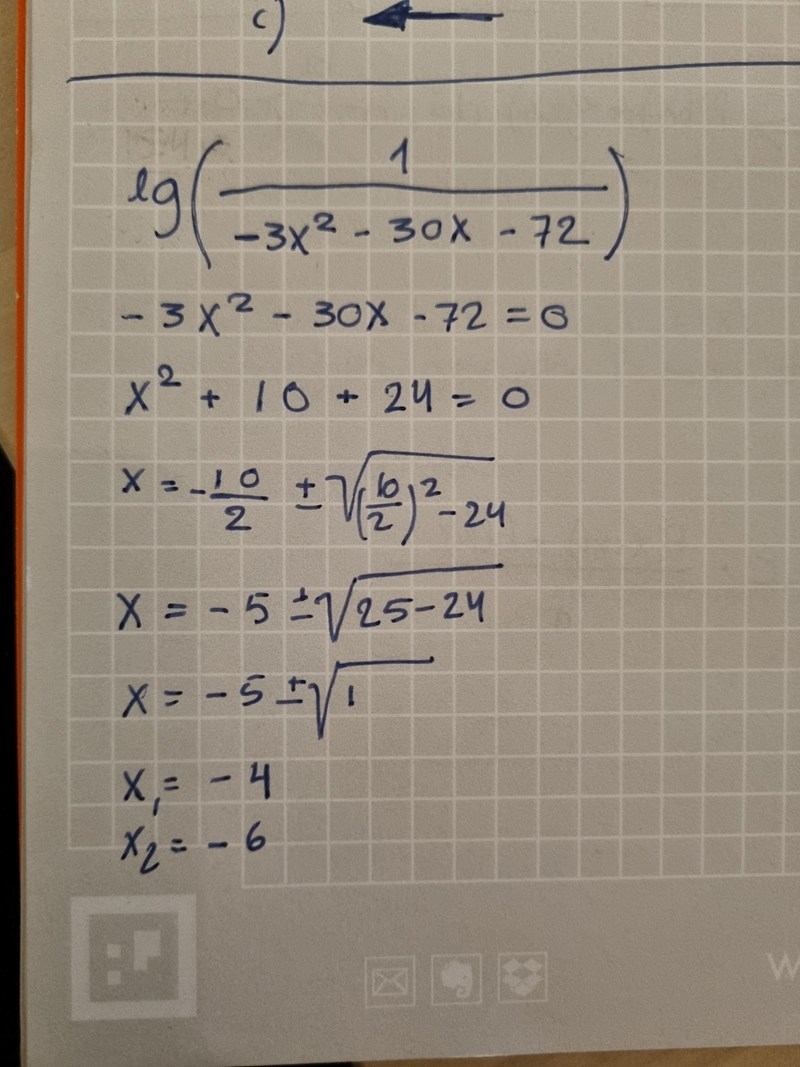 c) ←
lg(1/(-3x² - 30x - 72))
-3x² - 30x - 72 = 0
x² + 10 + 24 = 0
x = -10/2 ± √((10/2)² - 24)
x = -5 ± √(25-24)
x = -5 ± √1
x₁ = -4
x₂ = -6
W